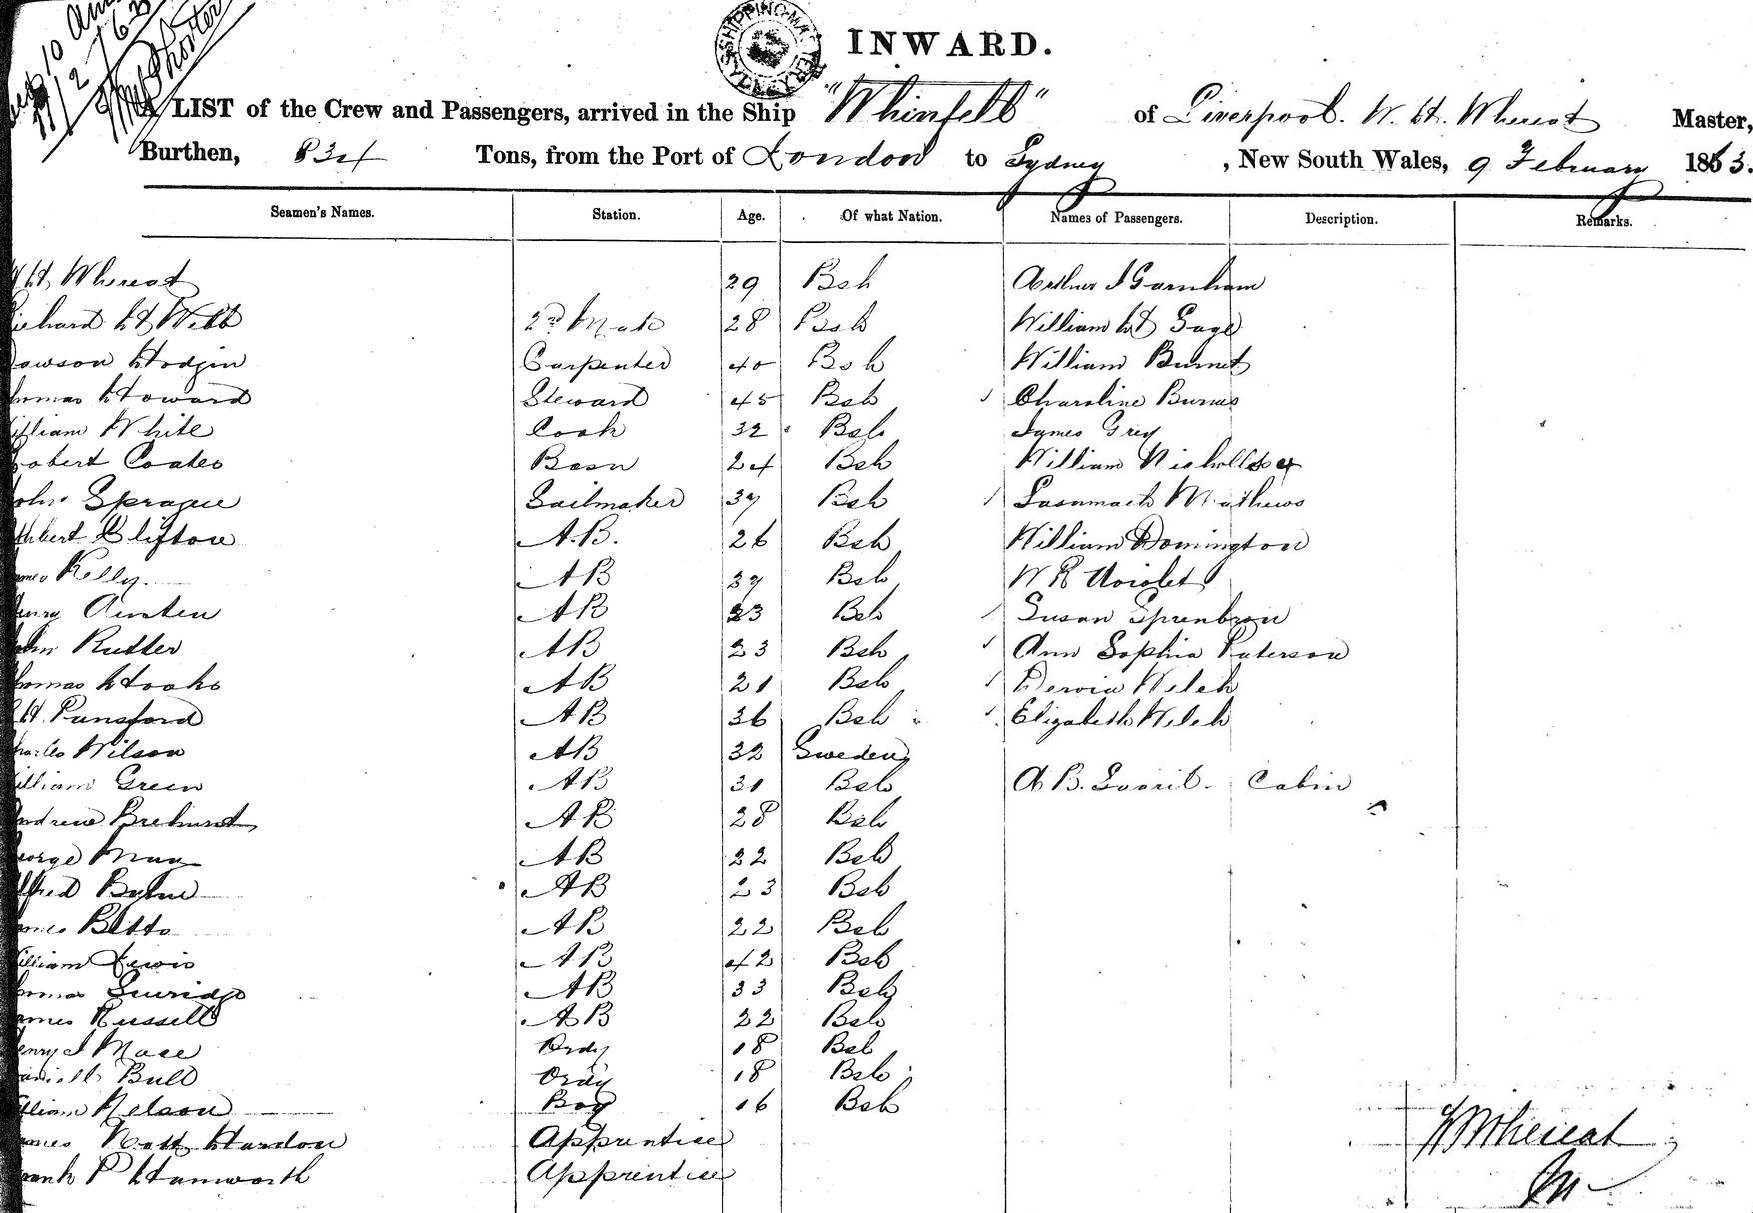 INWARD.
LIST of the Crew and Passengers, arrived in the Ship "Whinfell" of Liverpool. W. H. Whereat Master,
Burthen, 834 Tons, from the Port of London to Sydney, New South Wales, 9 February 1863.
Seamen's Names. Station. Age. Of what Nation. Names of Passengers. Description. Remarks.
H Whereat 29 Bsh
ichard H Webb 2nd Mate 28 Bsh William H Gage
awson Hodgin Carpenter 40 Bsh William Burnet
homas Howard Steward 45 Bsh
illiam White Cook 32 Bsh James Grey
obert Coates Bosn 24 Bsh William
ohn Sprague Sailmaker 37 Bsh Mathews
Clifton A.B. 26 Bsh William Donnington
ames Kelly. AB 37 Bsh W R
enry Austen AB 23 Bsh Susan
ohn Rutter AB 23 Bsh Ann Sophia Paterson
homas Hooks AB 21 Bsh Welch
H. Punsford AB 36 Bsh Elizabeth Welch
harles Wilson AB 32 Sweden
illiam Green AB 31 Bsh A B. Cabin
ndrew AB 28 Bsh
eorge May AB 22 Bsh
lfred AB 23 Bsh
ames Betts AB 22 Bsh
illiam Lewis AB 42 Bsh
homas AB 33 Bsh
ames Russell AB 22 Bsh
enry J Mace Ordy 18 Bsh
aniell Bull Ordy 18 Bsh
illiam Nelson Boy 16 Bsh
ames Nott Hardon Apprentice
rank P Hamworth Apprentice
W H Whereat